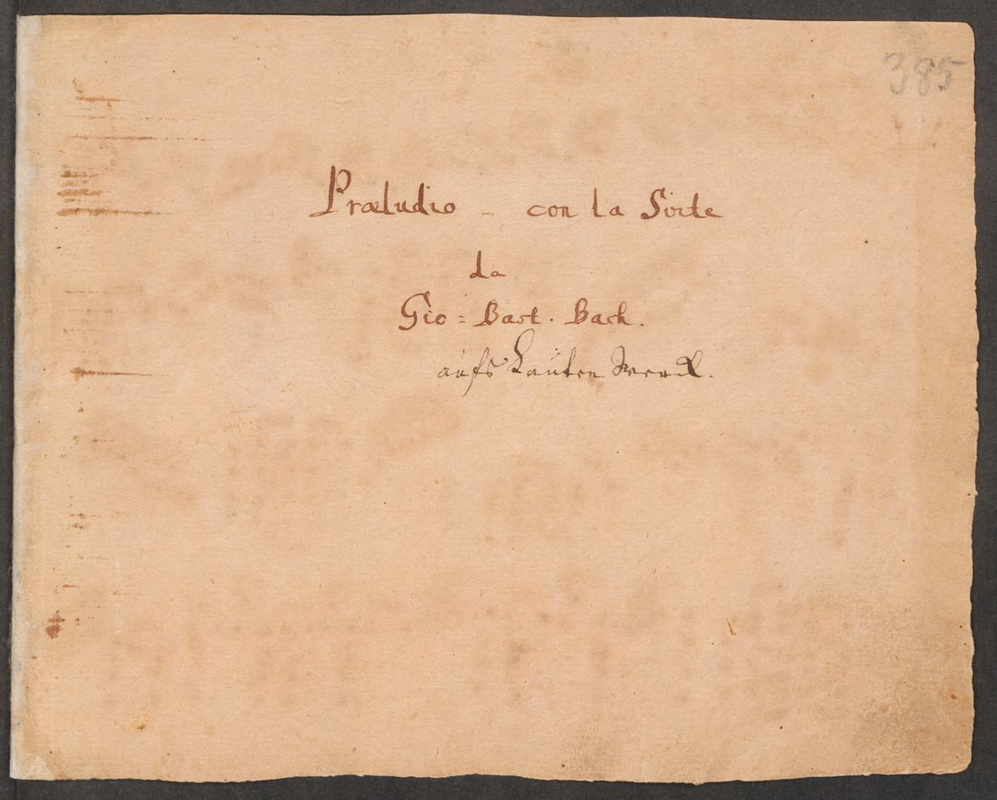 385
Præludio – con la Svite
da
Gio = Bast. Bach.
aufs Lauten Werck.